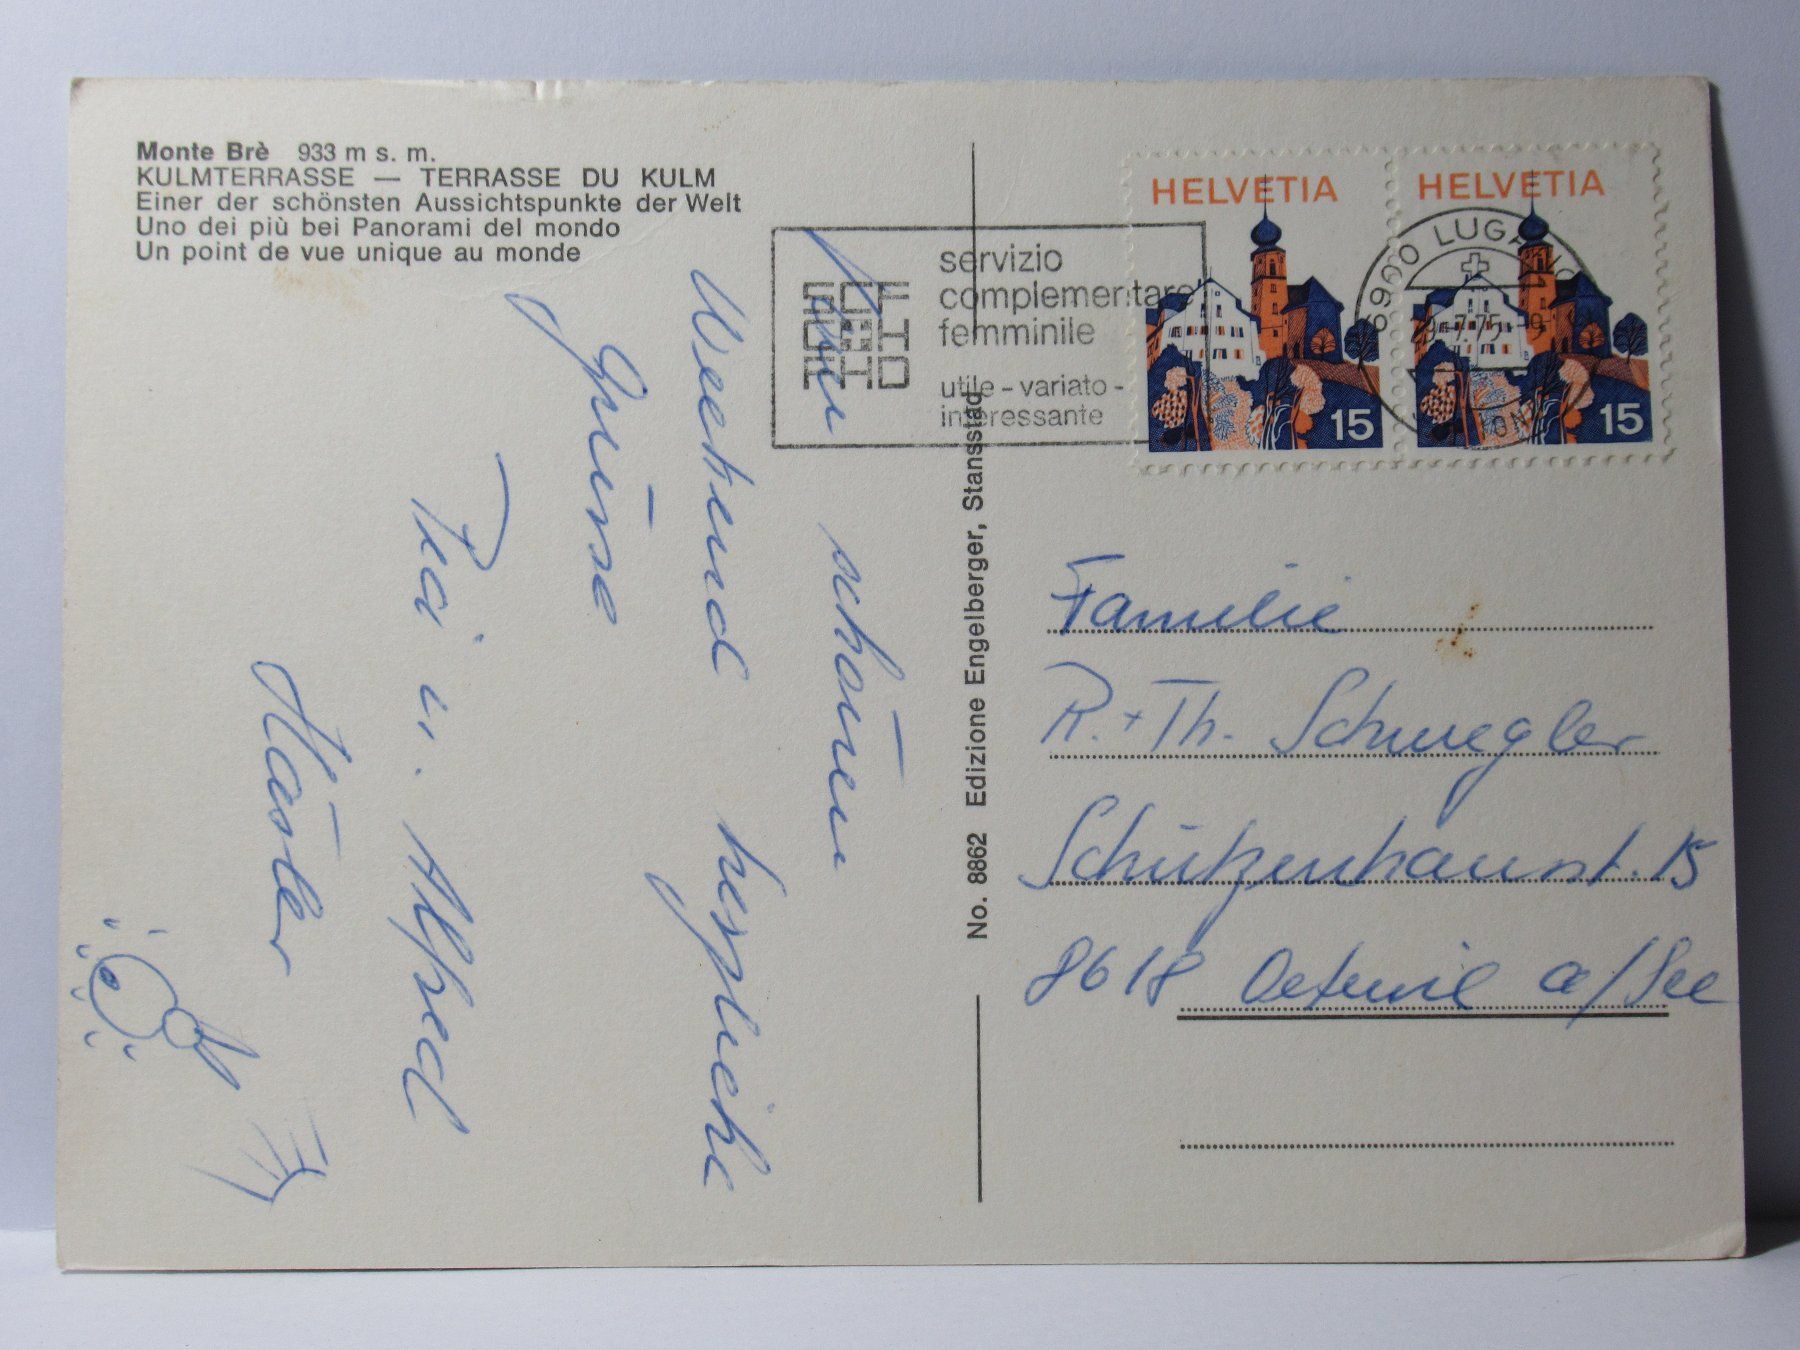 Monte Brè 933 m s. m.
KULMTERRASSE — TERRASSE DU KULM
Einer der schönsten Aussichtspunkte der Welt
Uno dei più bei Panorami del mondo
Un point de vue unique au monde
schönen
Weekend herzliche
Grüsse
u. Alfred
Häsler
No. 8862 Edizione Engelberger, Stansstad
SCF
CMH
FHD
servizio
complementare
femminile
utile - variato -
interessante
HELVETIA
15
HELVETIA
15
6900 LUGANO
7.75
Familie
R. + Th. Schwegler
Schützenhausst. 15
8618 Oetwil a/See